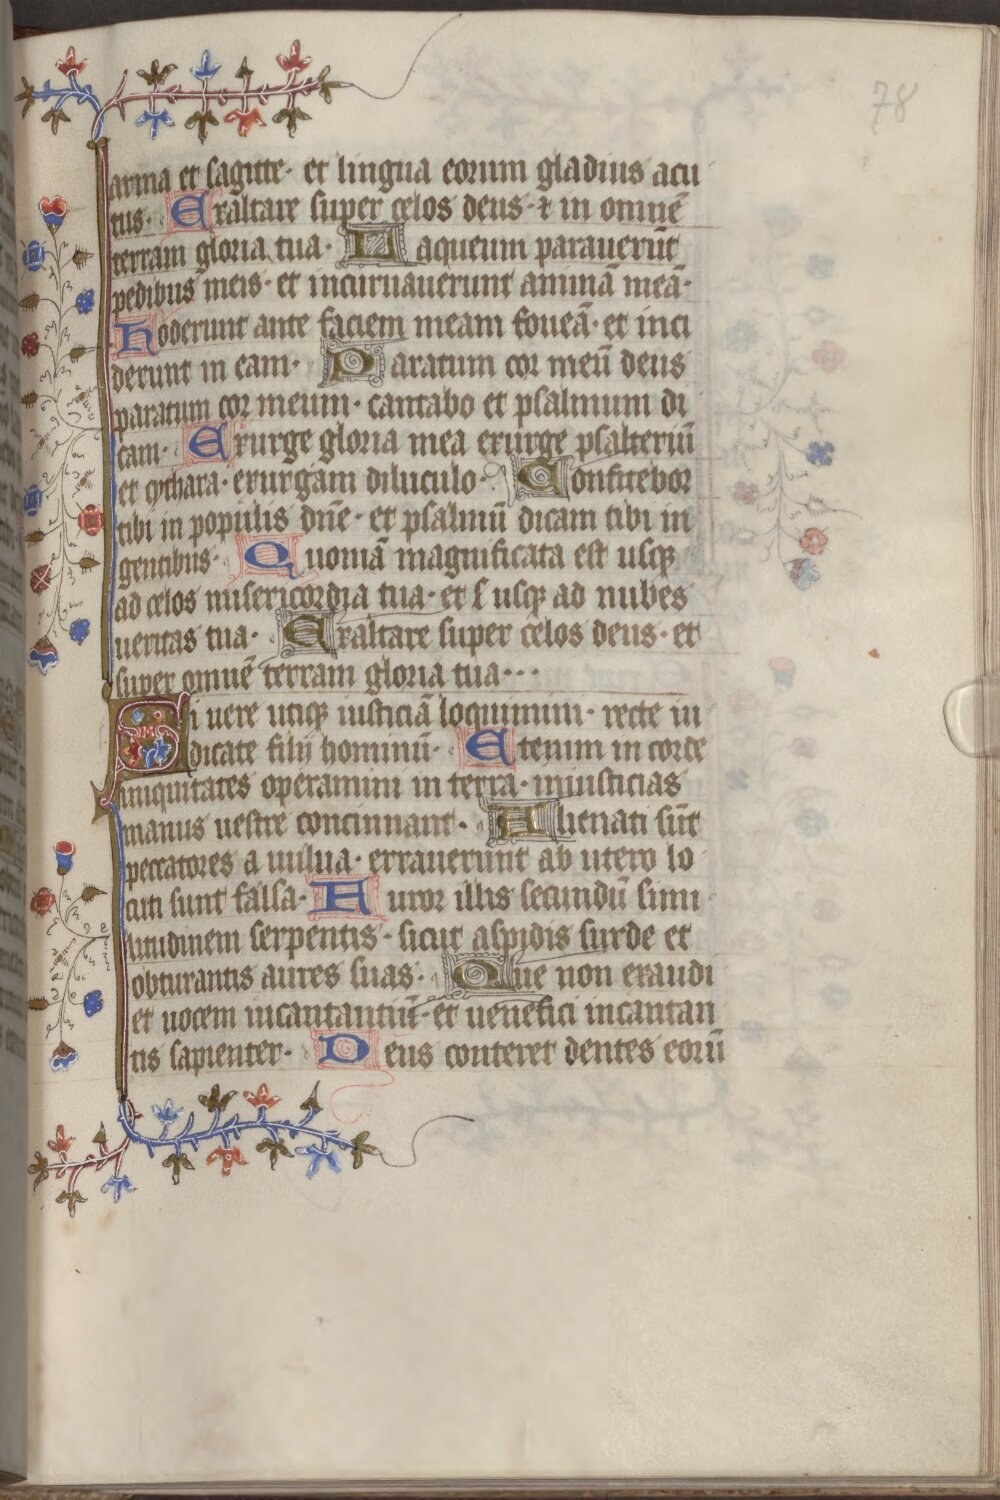 78
arma et sagitte · et lingua eorum gladius acu
tus · Exaltare super celos deus · ⁊ in omnē
terram gloria tua · Laqueum parauerūt
pedibus meis · et incuruauerunt animā meā ·
Foderunt ante faciem meam foueā · et inci
derunt in eam · Paratum cor meū deus
paratum cor meum · cantabo et psalmum di
cam · Exurge gloria mea exurge psalteriū
et cythara · exurgam diluculo · Confitebor
tibi in populis dn̄e · et psalmū dicam tibi in
gentibus · Quoniā magnificata est usqꝫ
ad celos misericordia tua · et usqꝫ ad nubes
ueritas tua · Exaltare super celos deus · et
super omnē terram gloria tua · · ·
Si uere utiqꝫ iusticiā loquimini · recte iu
dicate filij hominū · Etenim in corde
iniquitates operamini in terra · iniusticias
manus uestre concinnant · Alienati sūt
peccatores a uulua · errauerunt ab utero lo
cuti sunt falsa · Furor illis secundū simi
litudinem serpentis · sicut aspidis surde et
obturantis aures suas · Que non exaudi
et uocem incantantiū · et uenefici incantan
tis sapienter · Deus conteret dentes eorū